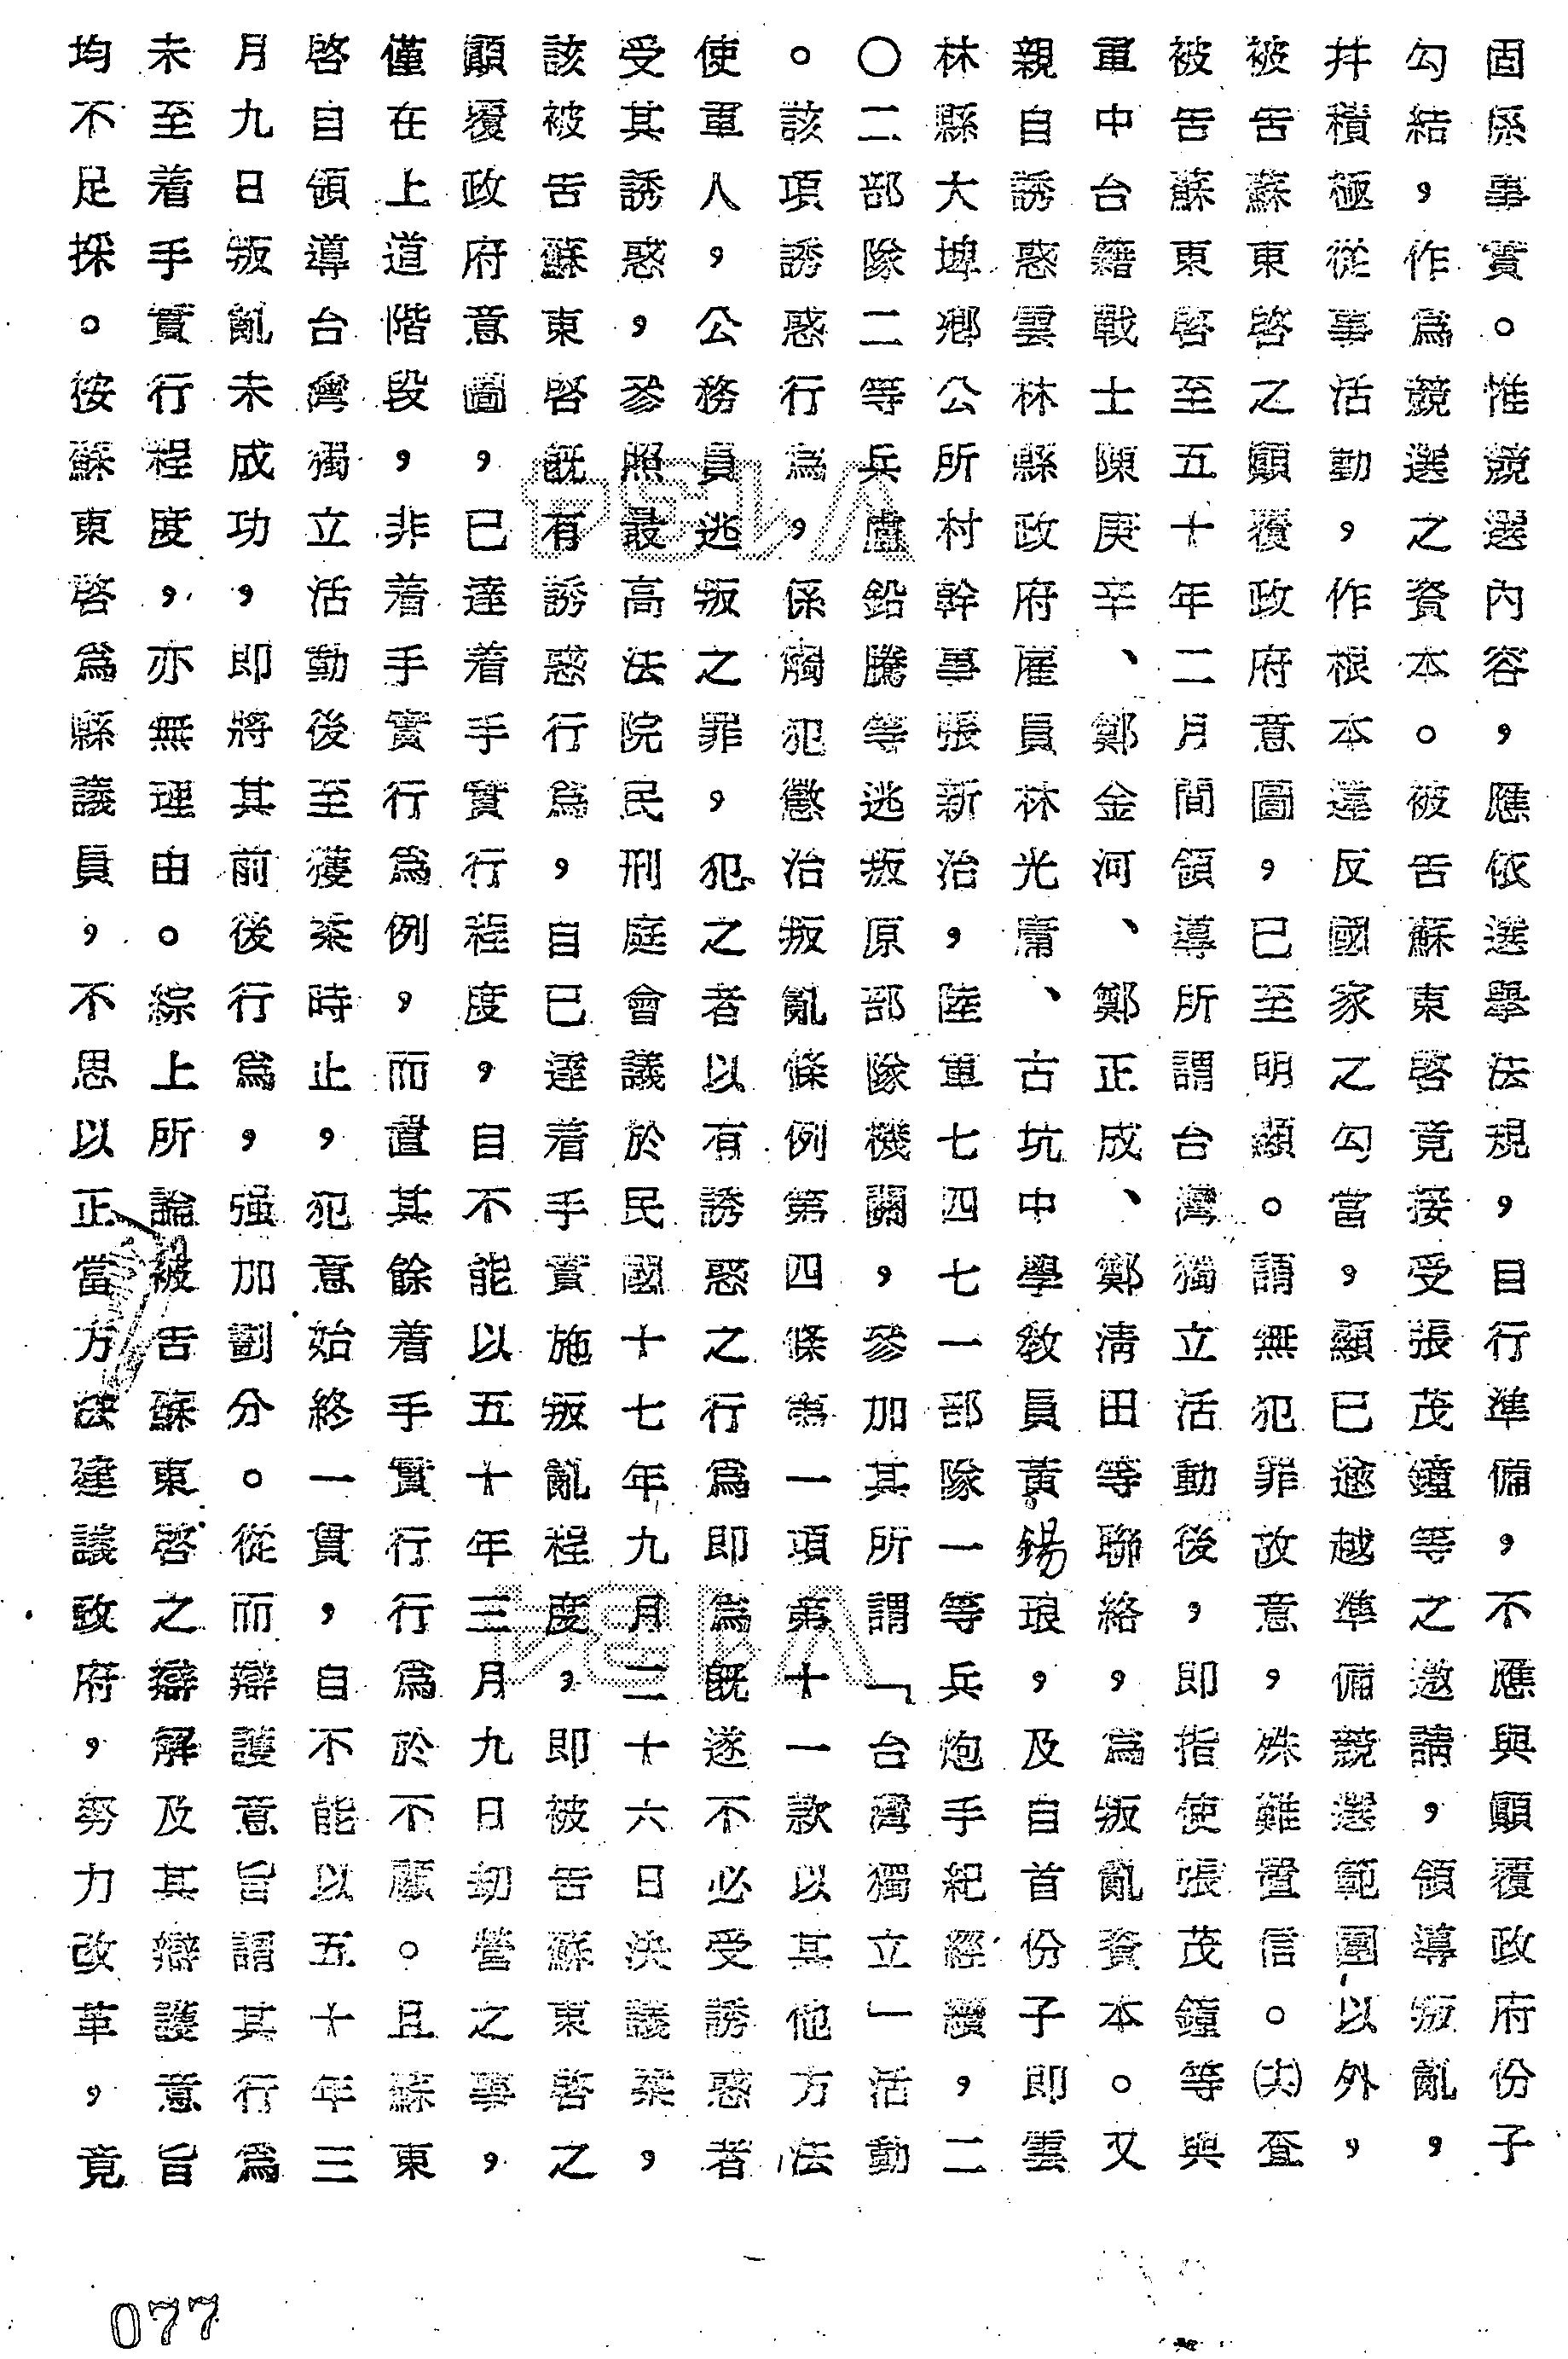 固係事實。惟競選內容，應依選舉法規，目行準備，不應與顛覆政府份子
勾結，作為競選之資本。被告蘇東啓竟接受張茂鐘等之邀請，領導叛亂，
幷積極從事活動，作根本違反國家之勾當，顯已逾越準備競選範圍以外，
被告蘇東啓之顛覆政府意圖，已至明顯。謂無犯罪故意，殊難置信。㈥查
被告蘇東啓至五十年二月間領導所謂台灣獨立活動後，即指使張茂鐘等與
軍中台籍戰士陳庚辛、鄭金河、鄭正成、鄭清田等聯絡，為叛亂資本。又
親自誘惑雲林縣政府雇員林光庸、古坑中學教員黃錫琅，及自首份子即雲
林縣大埤鄉公所村幹事張新治，陸軍七四七一部隊一等兵炮手紀經纘，二
〇二部隊二等兵盧鉛騰等逃叛原部隊機關，參加其所謂「台灣獨立」活動
。該項誘惑行為，係觸犯懲治叛亂條例第四條第一項第十一款以其他方法
使軍人，公務員逃叛之罪，犯之者以有誘惑之行為即為既遂不必受誘惑者
受其誘惑，參照最高法院民刑庭會議於民國十七年九月二十六日決議案，
該被告蘇東啓既有誘惑行為，自已達着手實施叛亂程度，即被告蘇東啓之
顛覆政府意圖，已達着手實行程度，自不能以五十年三月九日劫營之事，
僅在上道階段，非着手實行為例，而置其餘着手實行行為於不顧。且蘇東
啓自領導台灣獨立活動後至獲案時止，犯意始終一貫，自不能以五十年三
月九日叛亂未成功，即將其前後行為，強加劃分。從而辯護意旨謂其行為
未至着手實行程度，亦無理由。綜上所論被告蘇東啓之辯解及其辯護意旨
均不足採。按蘇東啓為縣議員，不思以正當方法建議政府，努力改革，竟
077